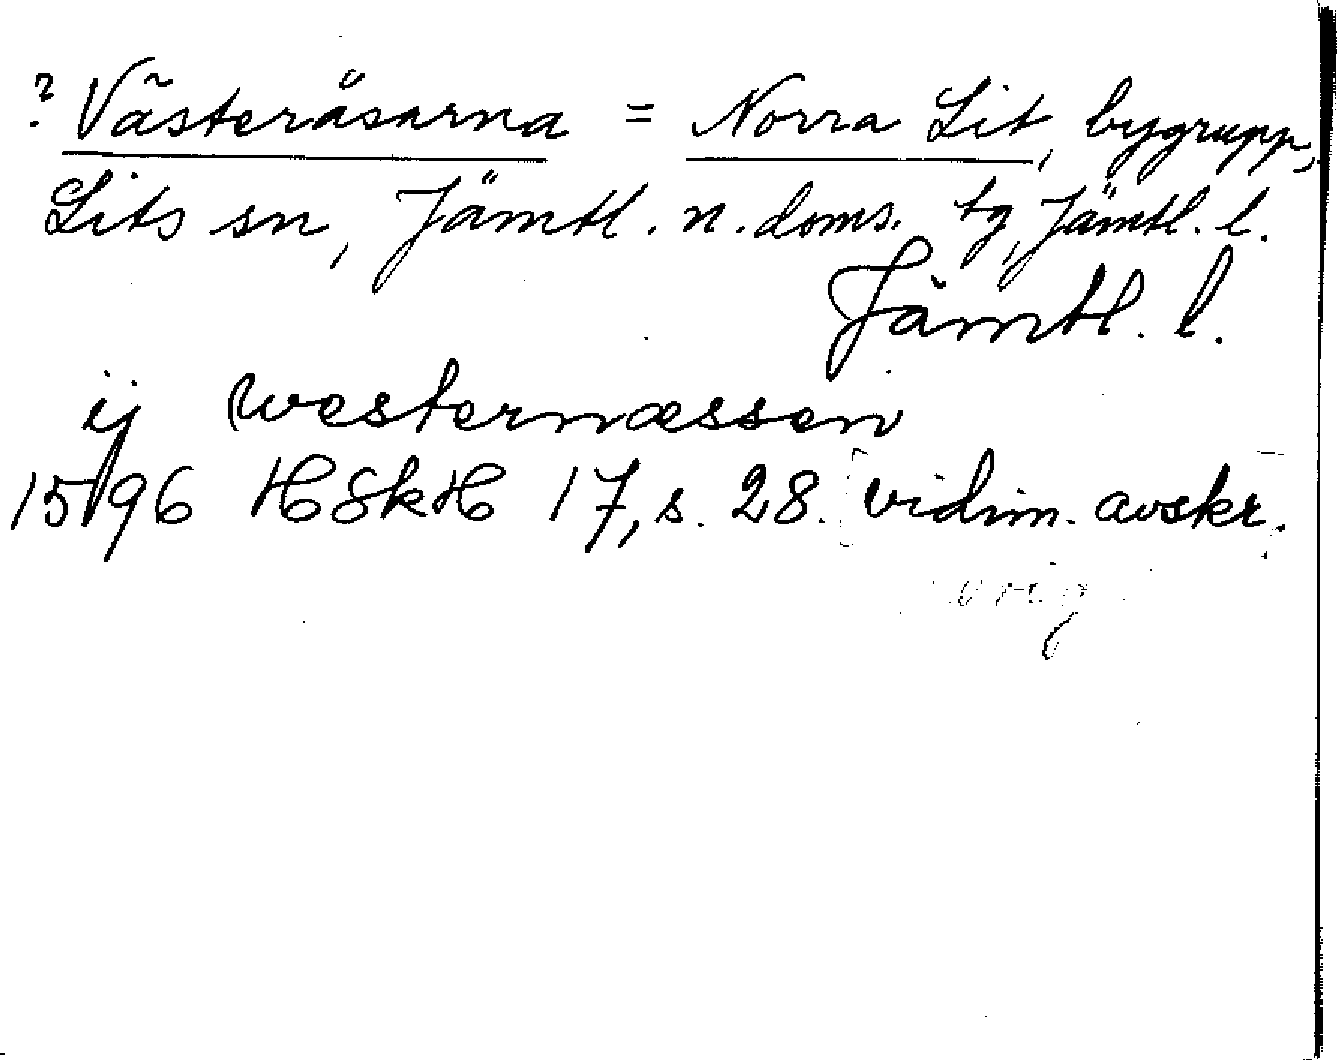 ? Västeråsarna = Norra Lit, bygrupp,
Lits sn, Jämtl. n. doms. tg, Jämtl. l.
Jämtl. l.
ij westernæssen
1596 H8kH 17, s. 28. vidim. avskr.
orig